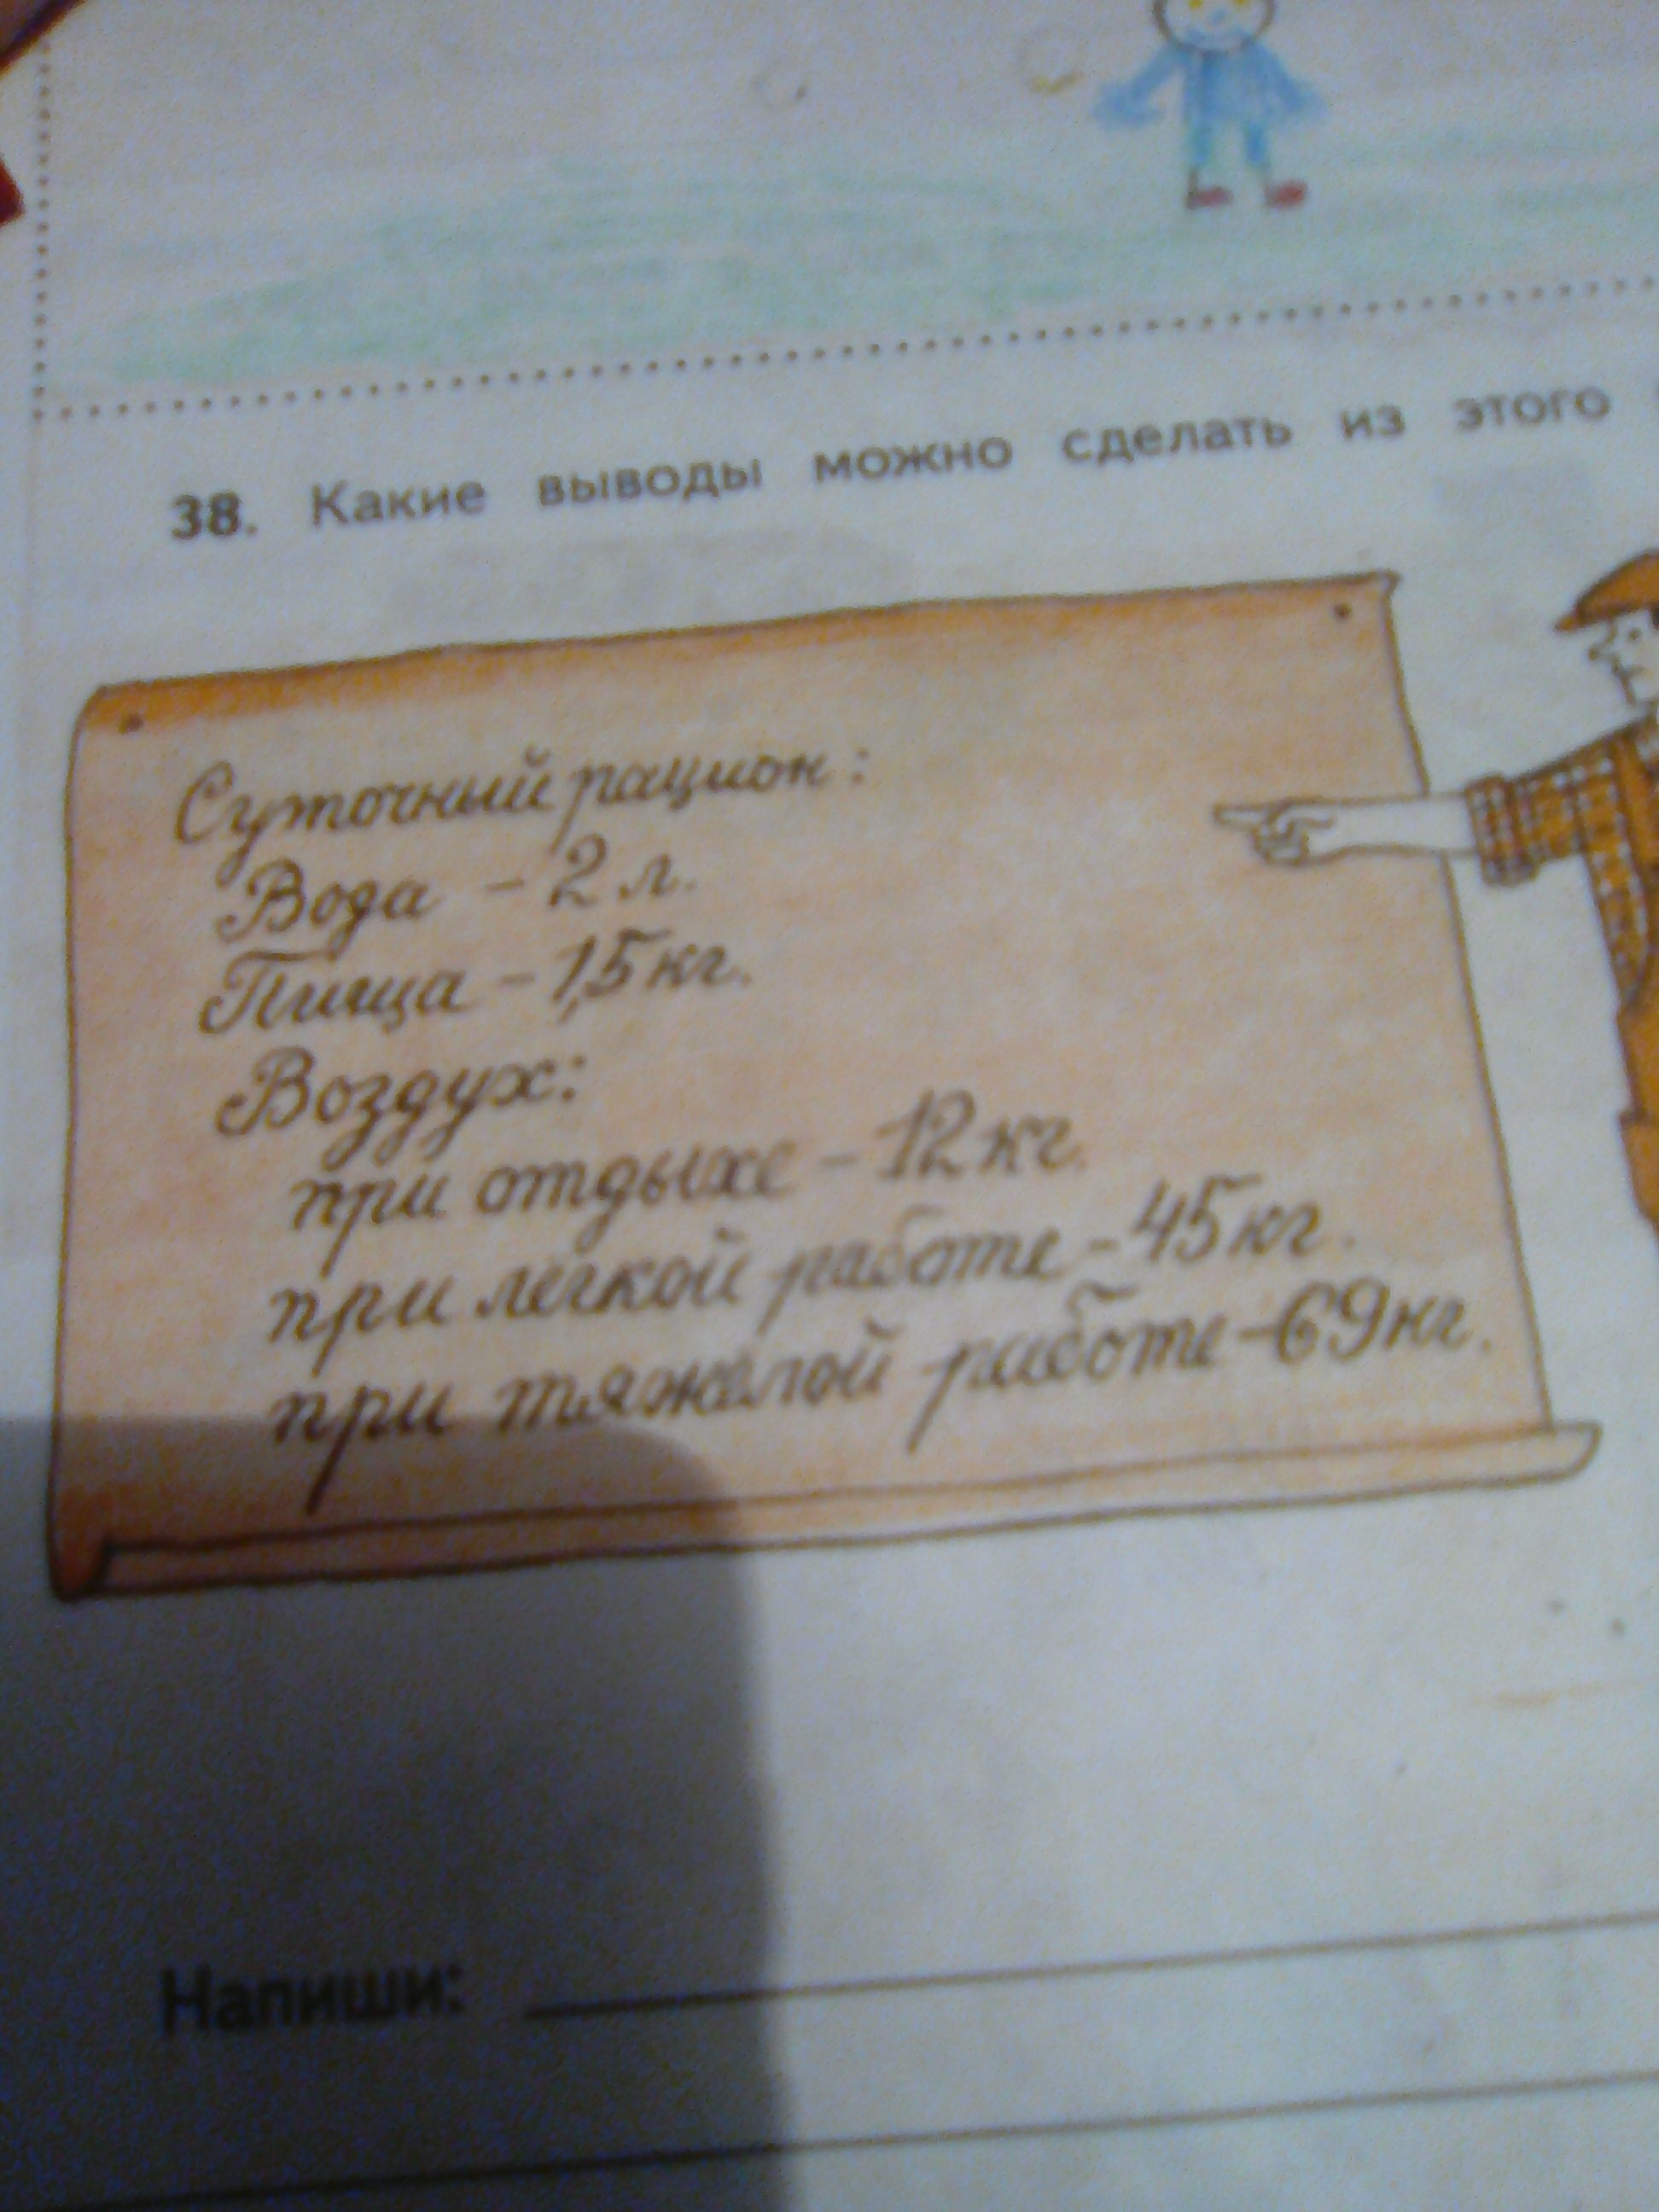 38. Какие выводы можно сделать из этого
Суточный рацион:
Вода - 2 л.
Пища - 1,5 кг.
Воздух:
при отдыхе - 12 кг.
при лёгкой работе - 45 кг.
при тяжёлой работе - 69 кг.
Напиши: